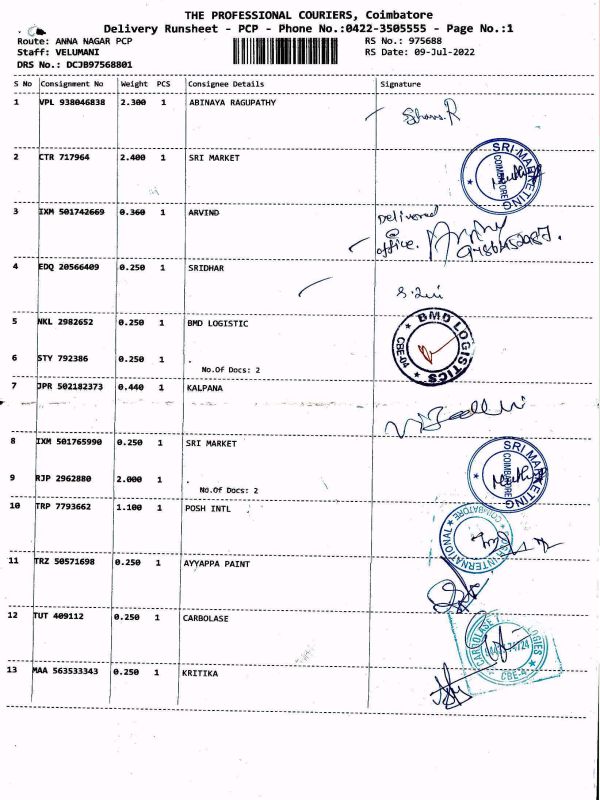 THE PROFESSIONAL COURIERS, Coimbatore
Delivery Runsheet - PCP - Phone No.:0422-3505555 - Page No.:1
Route: ANNA NAGAR PCP RS No.: 975688
Staff: VELUMANI RS Date: 09-Jul-2022
DRS No.: DCJB97568801
S No Consignment No Weight PCS Consignee Details Signature
1 VPL 938046838 2.300 1 ABINAYA RAGUPATHY
2 CTR 717964 2.400 1 SRI MARKET
SRI-MARKETING COIMBATORE
3 IXM 501742669 0.360 1 ARVIND
Delivered
@
office.
4 EDQ 20566409 0.250 1 SRIDHAR
5 NKL 2982652 0.250 1 BMD LOGISTIC
BMD LOGISTICS CBE-04
6 STY 792386 0.250 1 .
No.Of Docs: 2
7 JPR 502182373 0.440 1 KALPANA
8 IXM 501765990 0.250 1 SRI MARKET
SRI MARKETING COIMBATORE
9 RJP 2962880 2.000 1 .
No.Of Docs: 2
10 TRP 7793662 1.100 1 POSH INTL
INTERNATIONAL COIMBATORE
11 TRZ 50571698 0.250 1 AYYAPPA PAINT
12 TUT 409112 0.250 1 CARBOLASE
CARBOLASE CBE-4
13 MAA 563533343 0.250 1 KRITIKA